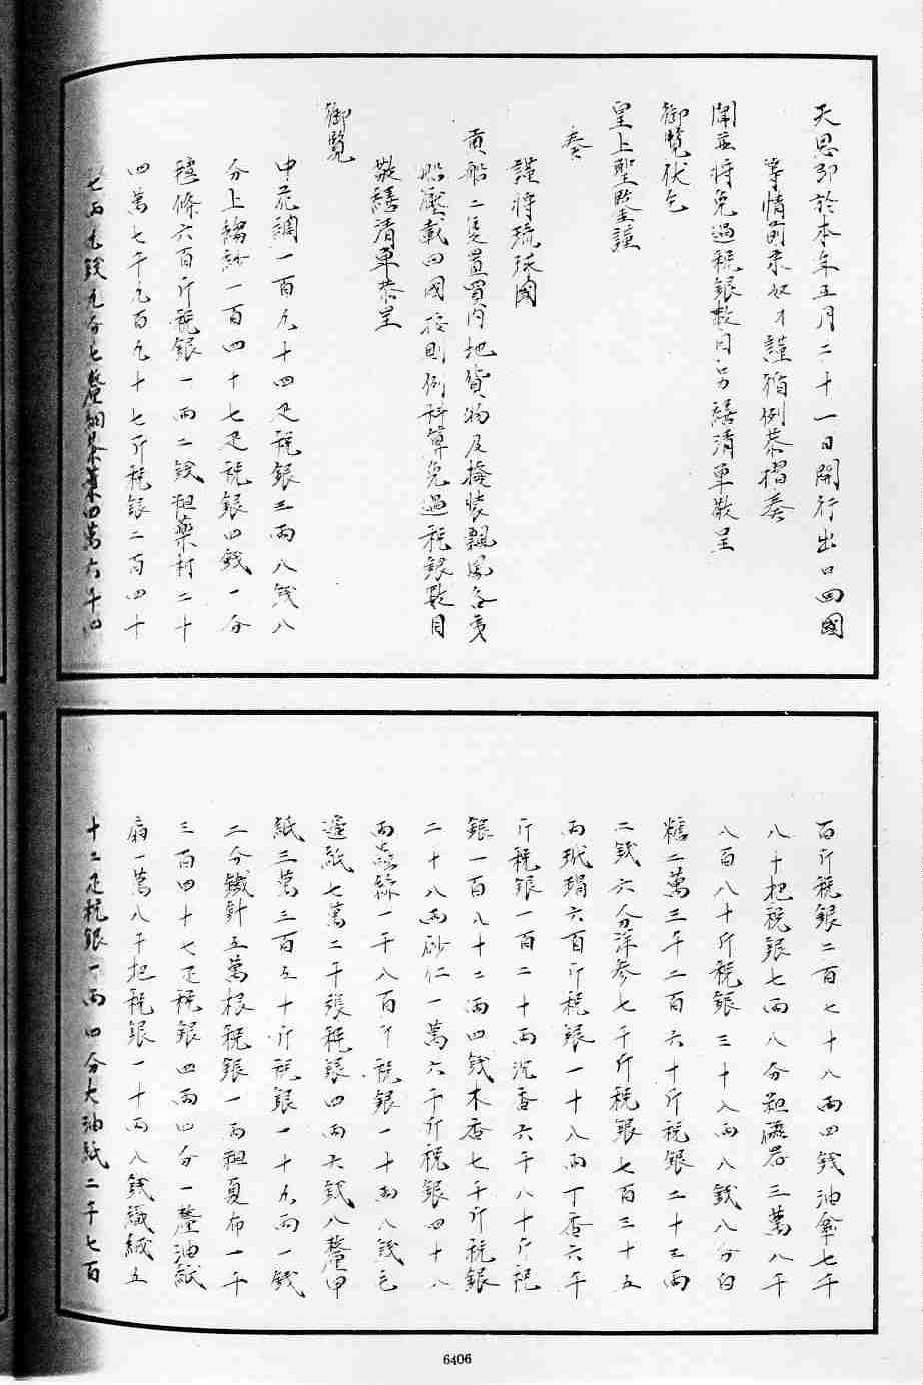 天恩即於本年五月二十一日開行出口回國
等情前來奴才謹循例恭摺奏
聞並將免過稅銀數目另繕清單敬呈
御覽伏乞
皇上聖鑒謹
奏
謹將琉球國
貢船二隻置買內地貨物及接
船壓載回國按則例科算免過稅銀數目
敬繕清單恭呈
御覽
中花綢一百九十四疋稅銀三兩八錢八
分上縐紗一百四十七疋稅銀四錢一分
氊條六百斤稅銀一兩二錢粗藥材二十
四萬七千九百九十七斤稅銀二百四十
七兩九錢九分七釐細茶葉四萬六千四
百斤稅銀二百七十八兩四錢油傘七千
八十把稅銀七兩八分粗磁器三萬八千
八百八十斤稅銀三十八兩八錢八分白
糖二萬三千二百六十斤稅銀二十三兩
二錢六分洋參七千斤稅銀七百三十五
兩玳瑁六百斤稅銀一十八兩丁香六千
斤稅銀一百二十兩沉香六千八十斤稅
銀一百八十二兩四錢木香七千斤稅銀
二十八兩砂仁一萬六千斤稅銀四十八
兩蟲絲一千八百斤稅銀一十兩八錢毛
邊紙七萬二千張稅銀四兩六錢八釐甲
紙三萬三百五十斤稅銀一十九兩一錢
二分鐵針五萬根稅銀一兩粗夏布一千
三百四十七疋稅銀四兩四分一釐油紙
扇一萬八千把稅銀一十兩八錢織絨五
十二疋稅銀一兩四分大油紙二千七百
6406